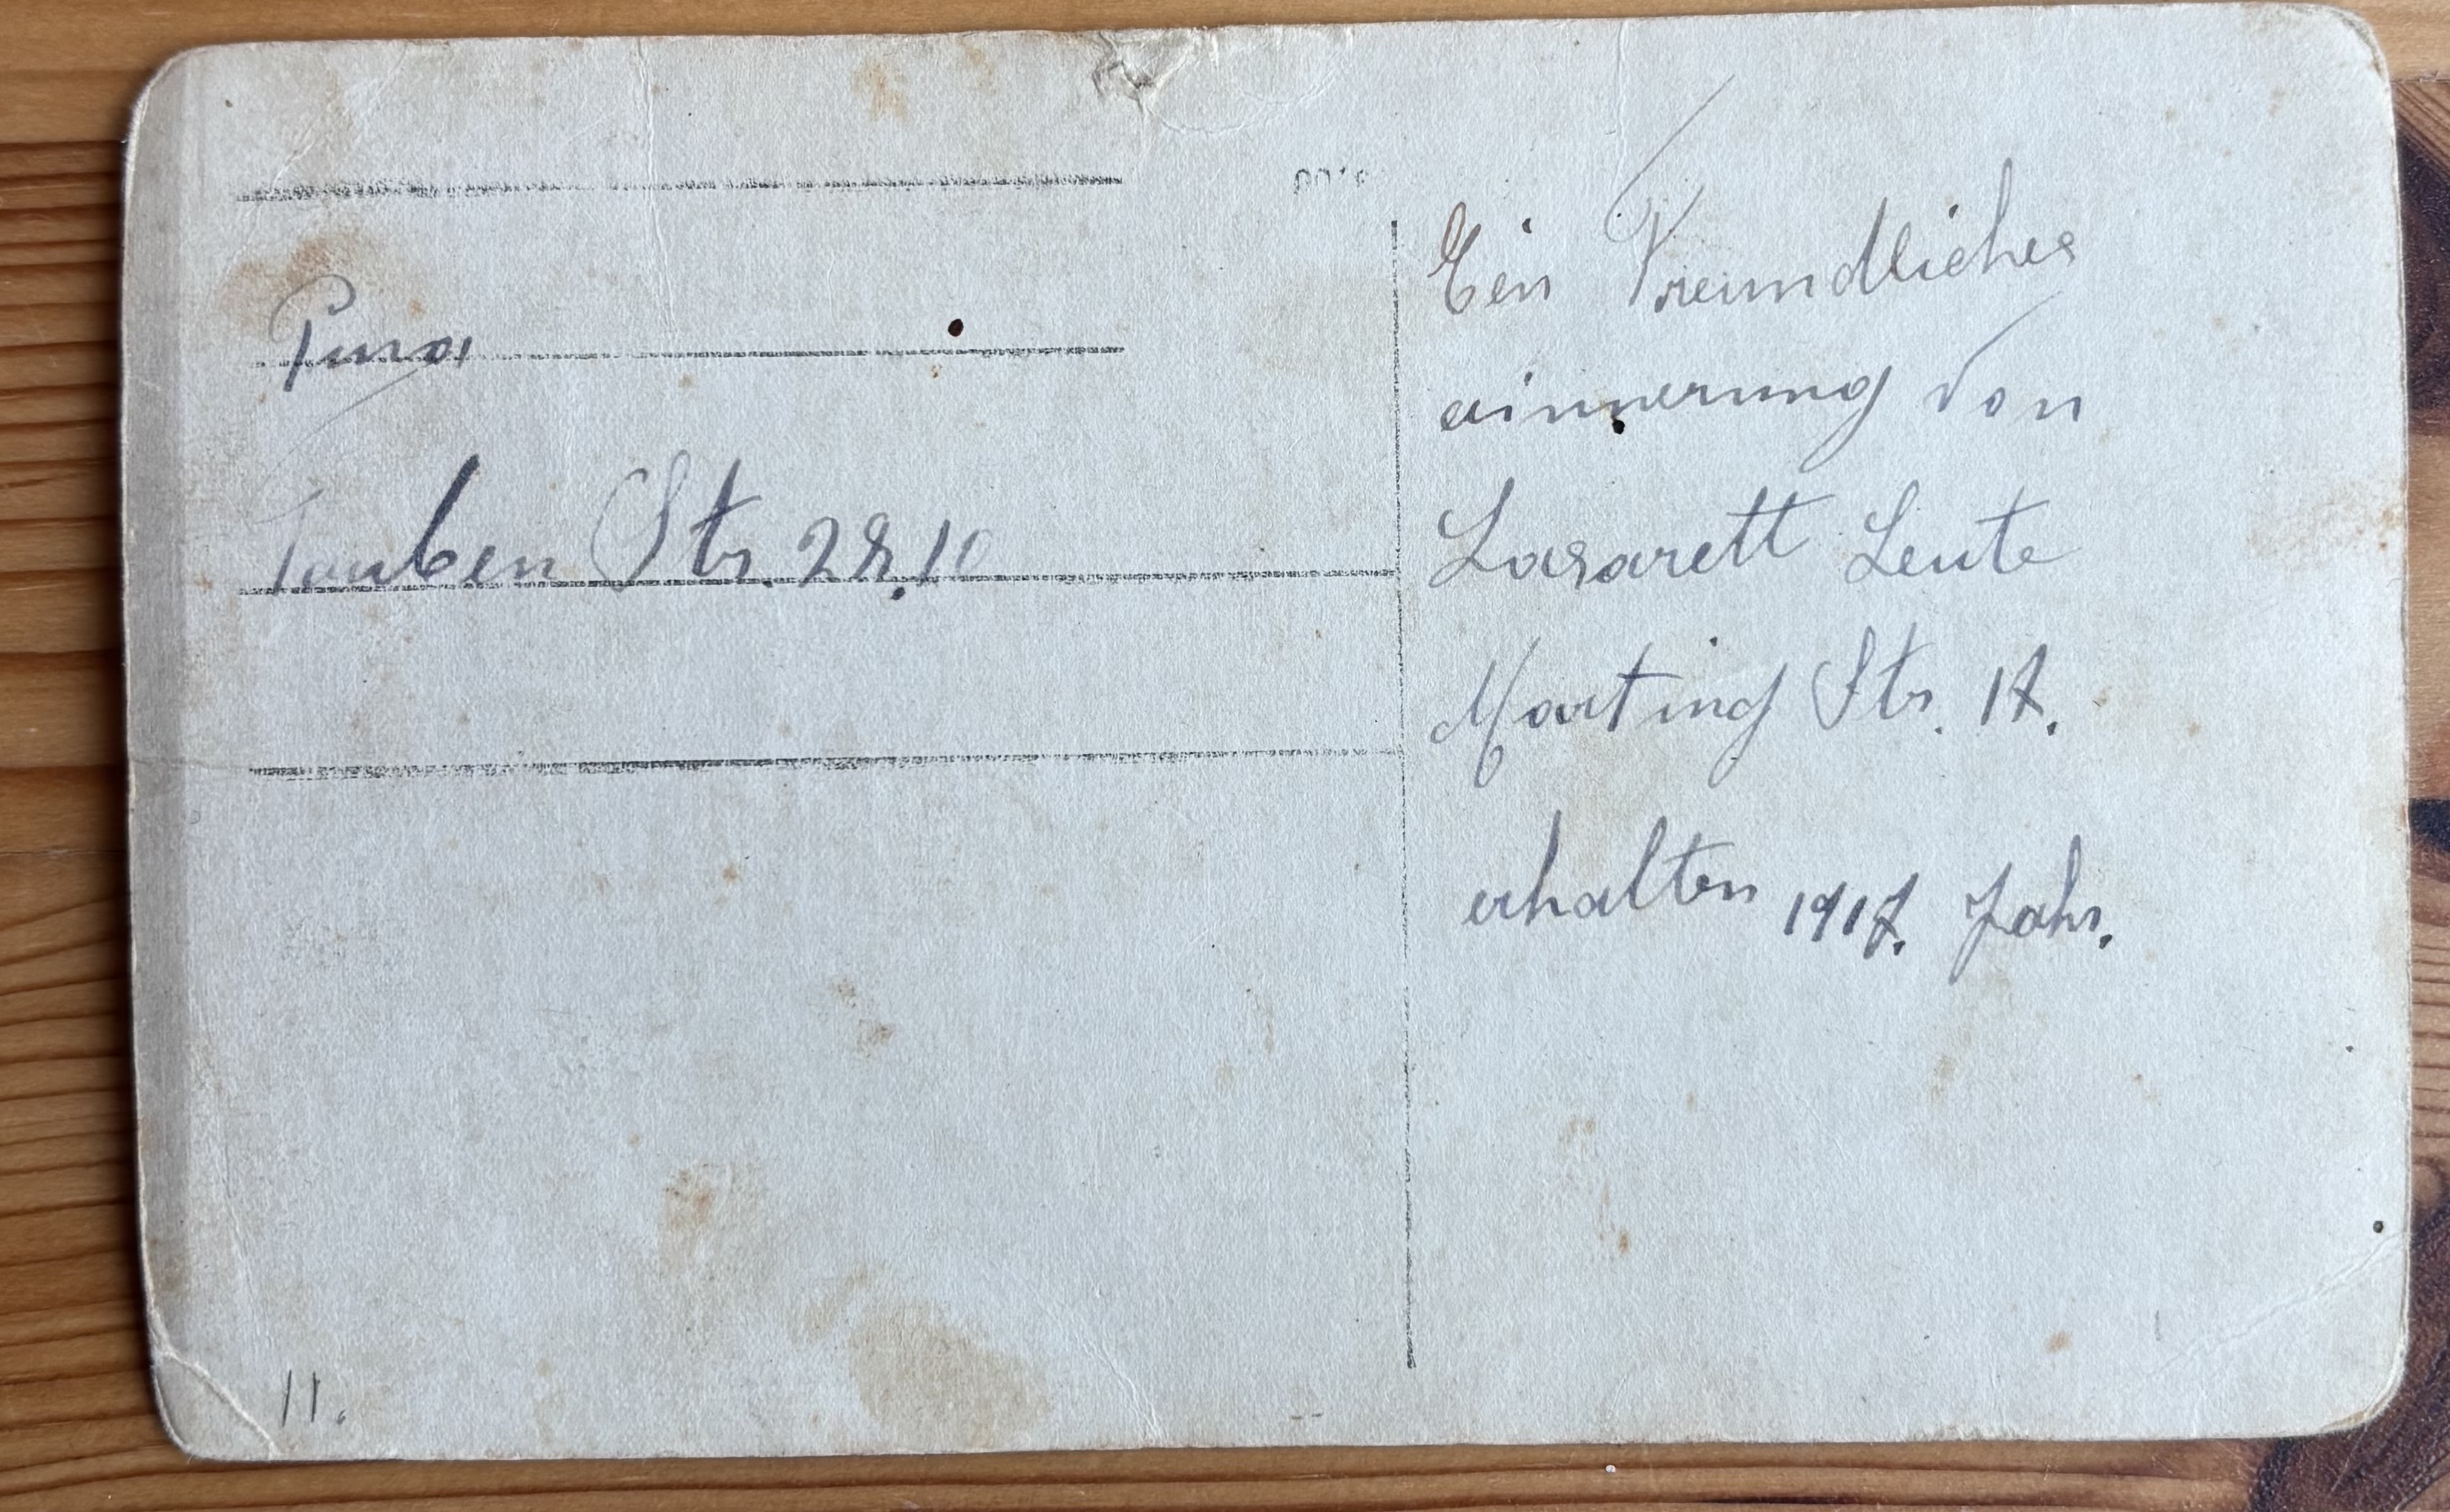 Pirna
Tauben Str. 28.10
11.
Ein Freundliches
erinnerung Von
Lasarett Leute
Marting Str. 17.
erhalten 1917. Jahr.